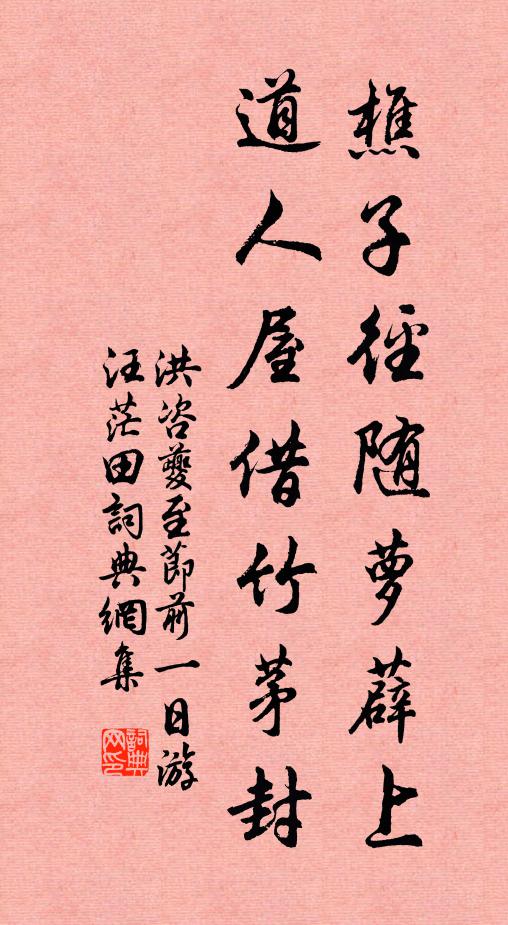 樵子徑随萝薜上
道人屋借竹茅封
洪咨夔至節前一日游
汪茫田詞典網集
詞典网印